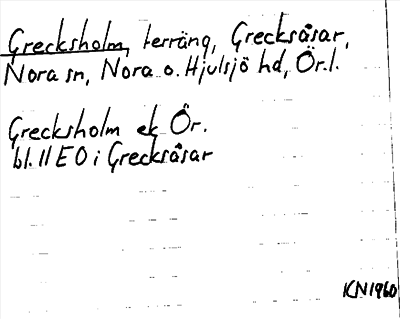 Grecksholm, terräng, Grecksåsar,
Nora sn, Nora o. Hjulsjö hd, Ör.l.
Grecksholm ek Ör.
bl. 11 EO i Grecksåsar
KN1960